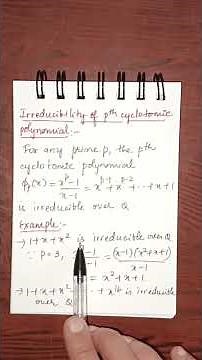 Irreducibility of pth cyclotomic
polynomial:-
For any prime p, the pth
cyclotomic polynomial
ϕp(x) = x^p-1/x-1 = x^p-1 + x^p-2 + ... + x + 1
is irreducible over Q
Example:-
→ 1+x+x² is irreducible over Q
∵ p=3, -1/-1 = (x-1)(x²+x+1)/x-1
= x²+x+1
→ 1+x+x² ... + x^16 is irreducible
over Q